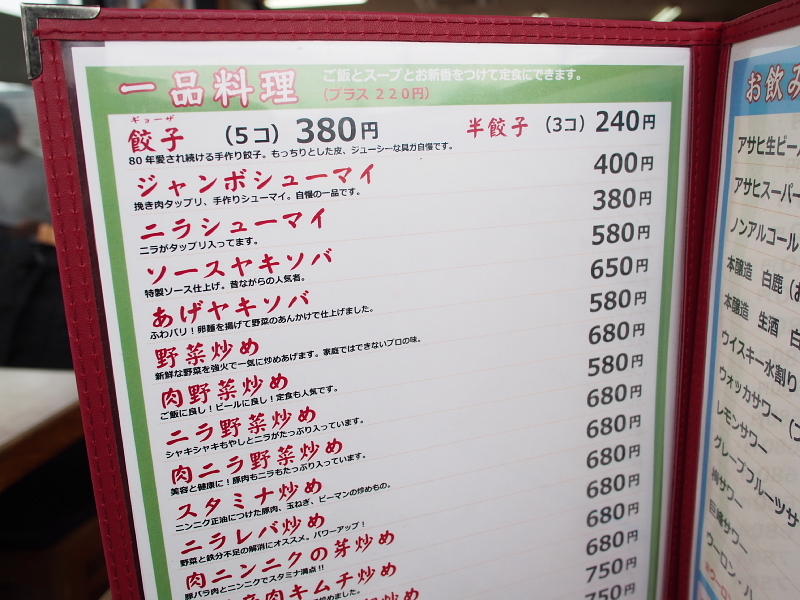 一品料理
ご飯とスープとお新香をつけて定食にできます。
(プラス 220円)
ギョーザ
餃子 (5コ) 380円
半餃子 (3コ) 240円
80年愛され続ける手作り餃子。もっちりとした皮、ジューシーな具が自慢です。
ジャンボシューマイ 400円
挽き肉タップリ、手作りシューマイ。自慢の一品です。
ニラシューマイ 380円
ニラがタップリ入ってます。
ソースヤキソバ 580円
特製ソース仕上げ。昔ながらの人気者。
あげヤキソバ 650円
ふわパリ!卵麺を揚げて野菜のあんかけで仕上げました。
野菜炒め 580円
新鮮な野菜を強火で一気に炒めあげます。家庭ではできないプロの味。
肉野菜炒め 680円
ご飯に良し!ビールに良し!定食も人気です。
ニラ野菜炒め 580円
シャキシャキもやしとニラがたっぷり入っています。
肉ニラ野菜炒め 680円
美容と健康に!豚肉もニラもたっぷり入っています。
スタミナ炒め 680円
ニンニク正油につけた豚肉、玉ねぎ、ピーマンの炒めもの。
ニラレバ炒め 680円
野菜と鉄分不足の解消にオススメ。パワーアップ!
肉ニンニクの芽炒め 680円
豚バラ肉とニンニクでスタミナ満点!!
肉キムチ炒め 680円
炒めました。
750円
750円
お飲み
アサヒ生ビー
アサヒスーパー
ノンアルコール
本醸造 白鹿
本醸造 生酒 白
ウイスキー水割り
ウォッカサワー
レモンサワー
グレープフルーツサ
梅サワー
巨峰サワー
ウーロン・ハ